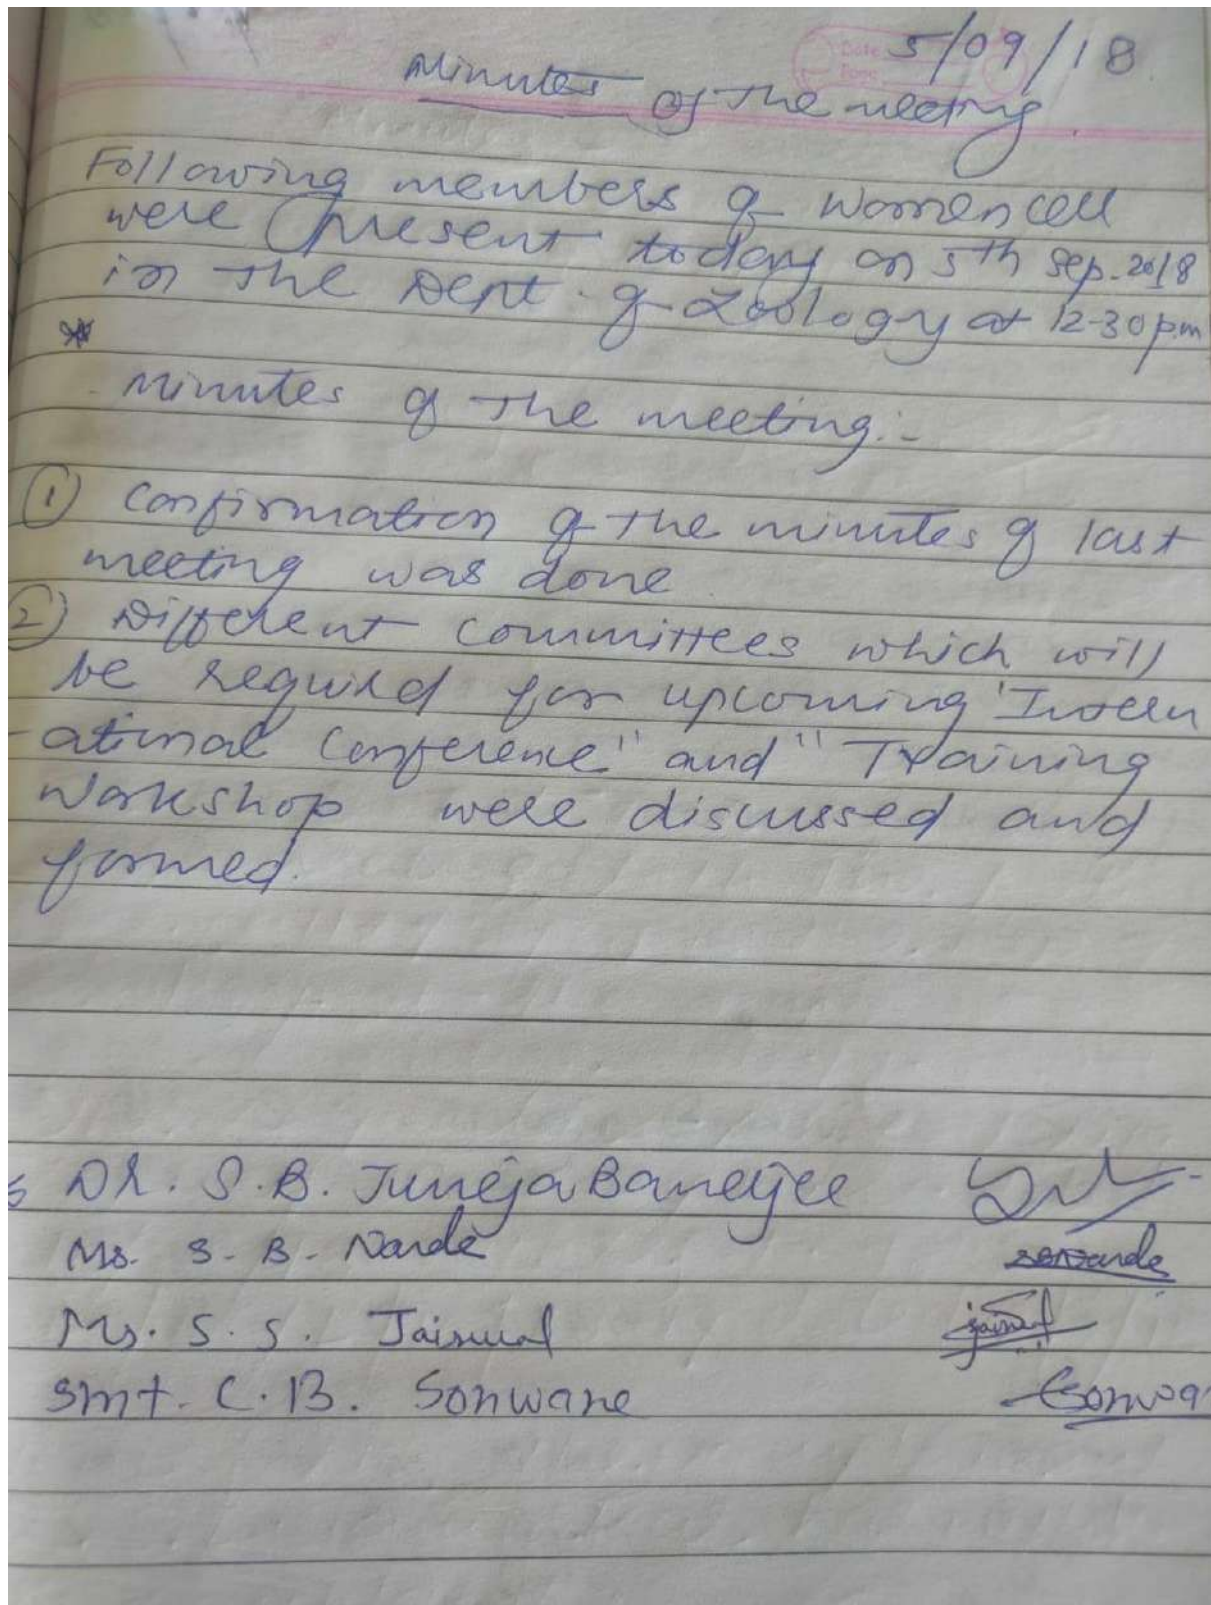 5/09/18
Minutes of the meeting.
Following members of Women cell
were present today on 5th Sep. 2018
in the Dept. of Zoology at 12-30 p.m
Minutes of the meeting:-
1) Confirmation of the minutes of last
meeting was done.
2) Different committees which will
be required for upcoming "Intern
-ational Conference" and "Training
Workshop were discussed and
formed.
Dr. S.B. Juneja Banerjee
Ms. S. B. Narde
Ms. S. S. Jaiswal
Smt. C. B. Sonwane